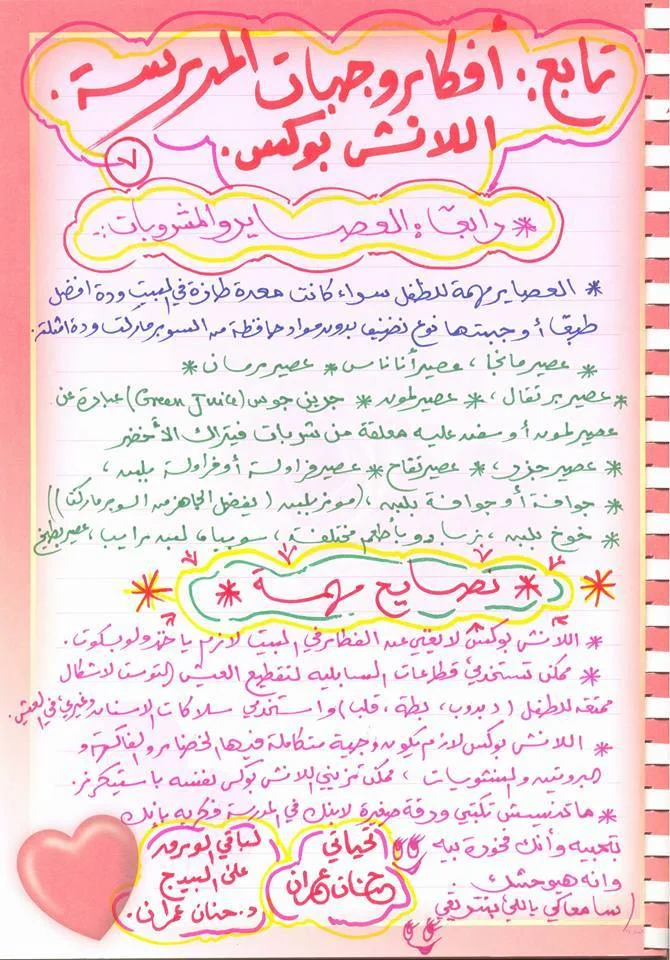 تابع: أفكار وجبات المدرسة.
اللانش بوكس.
٧
* رابعًا: العصاير والمشروبات:
* العصاير مهمة للطفل سواء كانت معدة طازة في البيت ودة افضل
طبعًا أو جبتها نوع نضيف بدون مواد حافظة من السوبر ماركت ودة امثلة.
* عصير مانجا، عصير أناناس * عصير رمان *
* عصير برتقال، * عصير لمون * جرين جوس (Green Juice) عبارة عن
عصير لمون أو سفن عليه معلقة من شربات فيتراك الأخضر
* عصير جزر، * عصير تفاح * عصير فراولة أو فراولة بلبن،
* جوافة أو جوافة بلبن، (موز بلبن (يفضل الجاهز من السوبر ماركت))
* خوخ بلبن، زبادو بأطعم مختلفة، سوبيا، لبن رايب، عصير بطيخ
* نصايح مهمة *
* اللانش بوكس لا يغني عن الفطار في البيت لازم ياخد ولو بسكوت.
* ممكن تستخدمي قطاعات السابليه لتقطيع العيش التوست لاشكال
ممتعه للطفل (دبدوب، بطة، قلب) واستخدمي سلاكات الاسنان وغيري في العيش.
* اللانش بوكس لازم يكون وجبة متكاملة فيها الخضار والفاكهة و
البروتين والنشويات، ممكن تزيني اللانش بوكس نفسه باستيكرز.
* ماتنسيش تكتبي ورقة صغيرة لابنك في المدرسة فكريه بإنك
بتحبيه وأنك فخورة بيه
وانه هيوحشك.
(سامعاكي ياللي بتتريقي
تحياتي
حنان عمران
لباقي البوردر
على البيدج
د. حنان عمران.